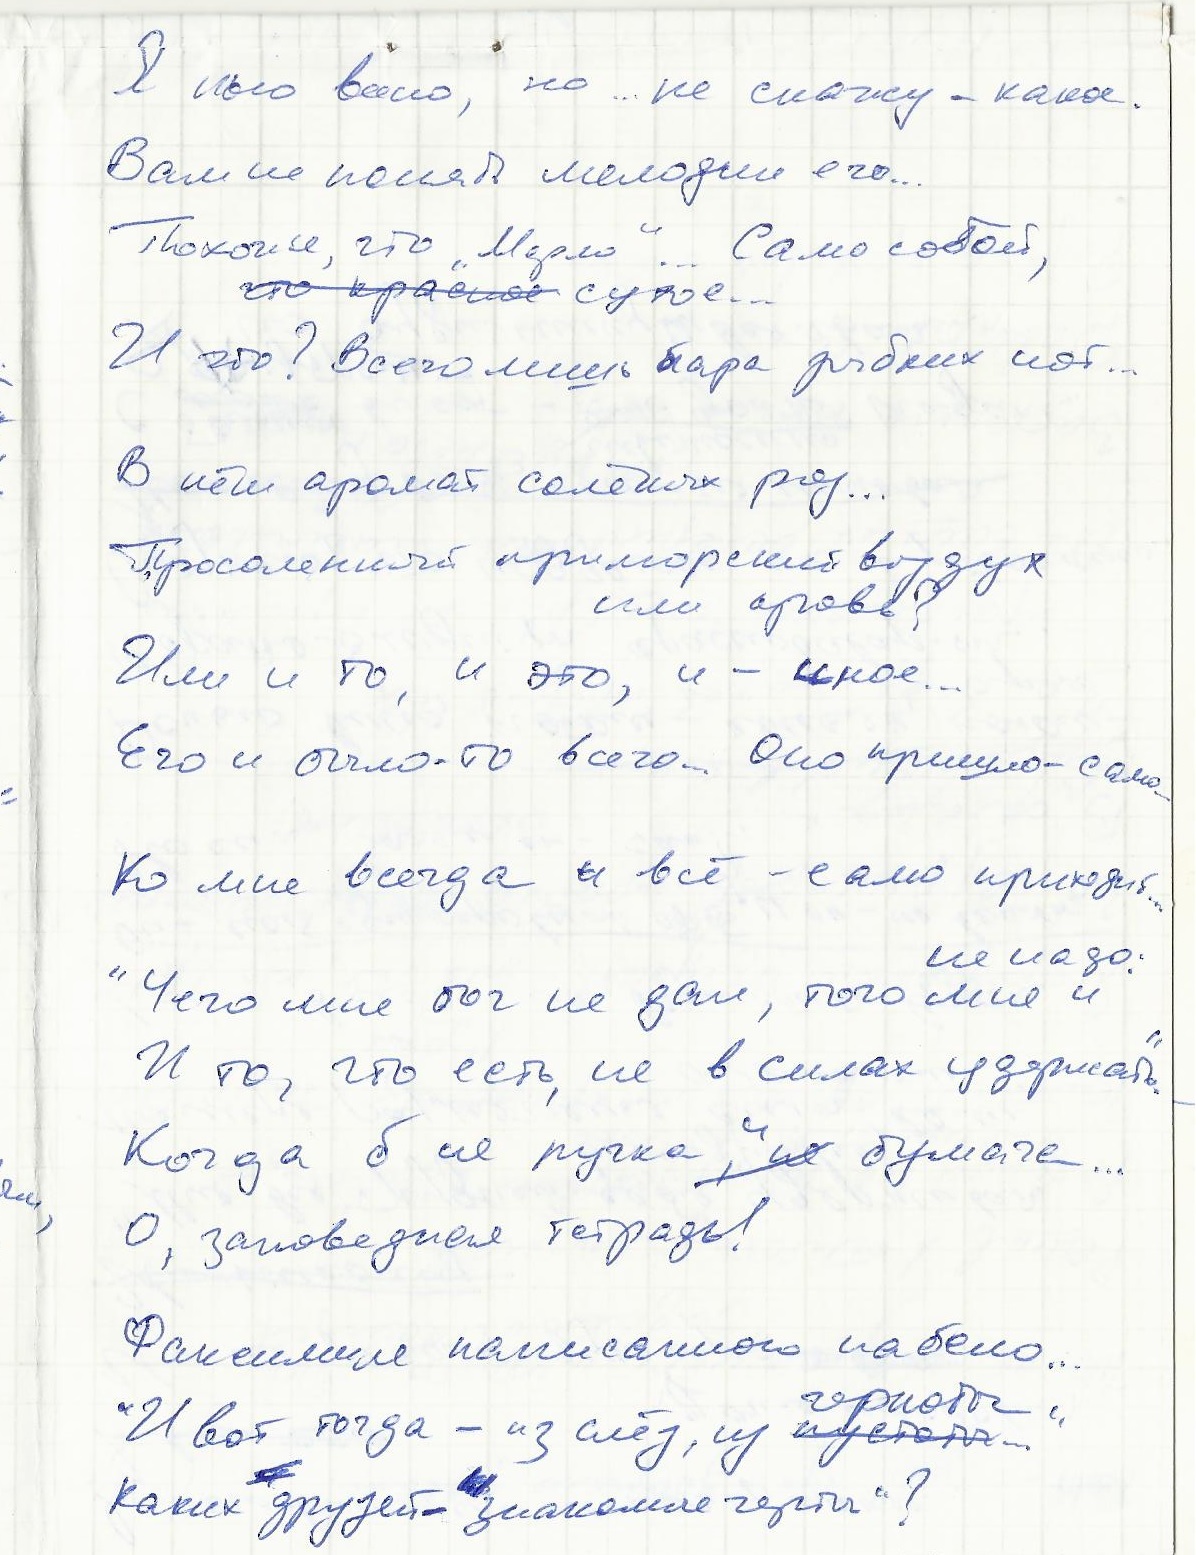 Я пью вино, но ... не скажу – какое.
Вам не понять мелодии его...
Похоже, что „Мерло“... Само собой,
что красное сухое...
И что? Всего лишь пара зыбких нот...
В нём аромат солёных роз...
Просоленный приморский воздух
или кровь?
Или и то, и это, и – иное...
Его и было-то всего... Оно пришло – само...
Ко мне всегда и всё – само приходит...
не надо:
"Чего мне бог не дал, того мне и
И то, что есть, не в силах удержать"...
Когда б не ручка, "не бумага...
О, заповедная тетрадь!
Факсимиле написанного набело...
черноты
"И вот тогда – из слёз, из пустоты..."
каких друзей – "знакомые черты"?